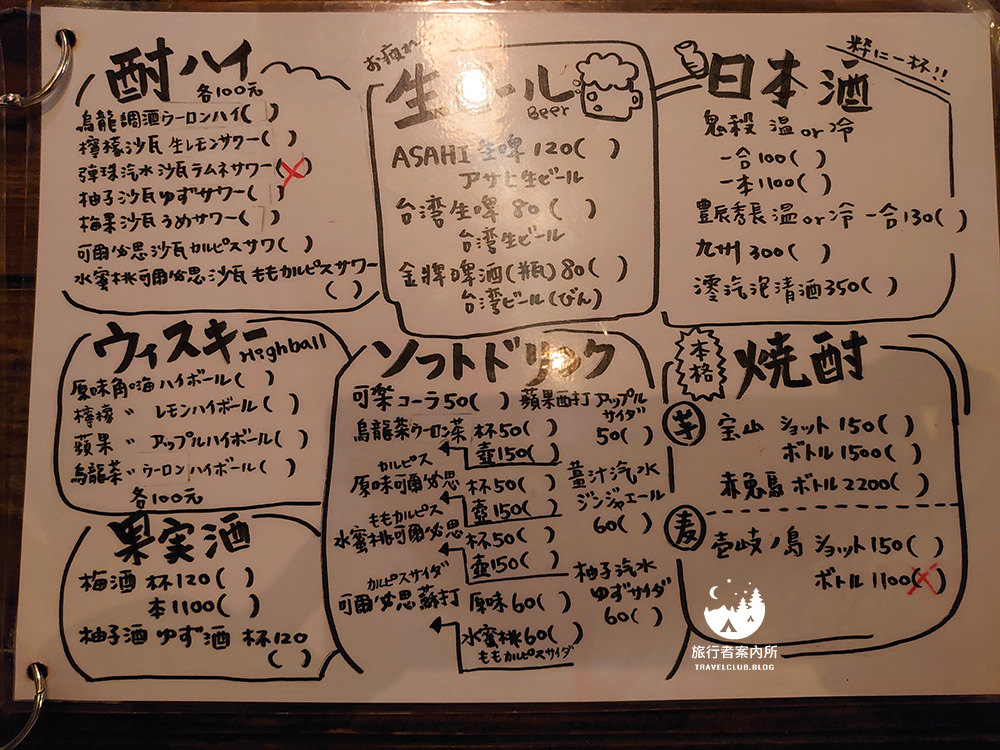 酎ハイ
各100元
烏龍調酒ウーロンハイ( )
檸檬沙瓦 生レモンサワー( )
彈珠汽水沙瓦ラムネサワー( )
柚子沙瓦ゆずサワー( )
梅果沙瓦うめサワー( )
可爾必思沙瓦カルピスサワ( )
水蜜桃可爾必思沙瓦ももカルピスサワー
( )
お疲れ
生ビール
Beer
ASAHI 生啤 120( )
アサヒ生ビール
台湾生啤 80( )
台湾生ビール
金牌啤酒(瓶)80( )
台湾ビール(びん)
粋に一杯!!
日本酒
鬼殺 温or冷
一合100( )
一本1100( )
豊辰秀長 温or冷 一合130( )
九州 300( )
澪汽泡清酒350( )
ウィスキー
Highball
原味角嗨ハイボール( )
檸檬 〃 レモンハイボール( )
蘋果 〃 アップルハイボール( )
烏龍茶 〃 ウーロンハイボール( )
各100元
果実酒
梅酒 杯120( )
本1100( )
柚子酒 ゆず酒 杯120
( )
ソフトドリンク
可楽コーラ50( )
烏龍茶ウーロン茶 杯50( )
壺150( )
カルピス
原味可爾必思 杯50( )
壺150( )
ももカルピス
水蜜桃可爾必思 杯50( )
壺150( )
カルピスサイダ
可爾必思蘇打 原味60( )
水蜜桃60( )
ももカルピスサイダ
蘋果西打 アップル
サイダ
50( )
薑汁汽水
ジンジャエール
60( )
柚子汽水
ゆずサイダ
60( )
本格
焼酎
芋 宝山 ショット150( )
ボトル1500( )
赤兎馬 ボトル2200( )
麦 壱岐ノ島 ショット150( )
ボトル1100( )
旅行者案內所
TRAVELCLUB.BLOG